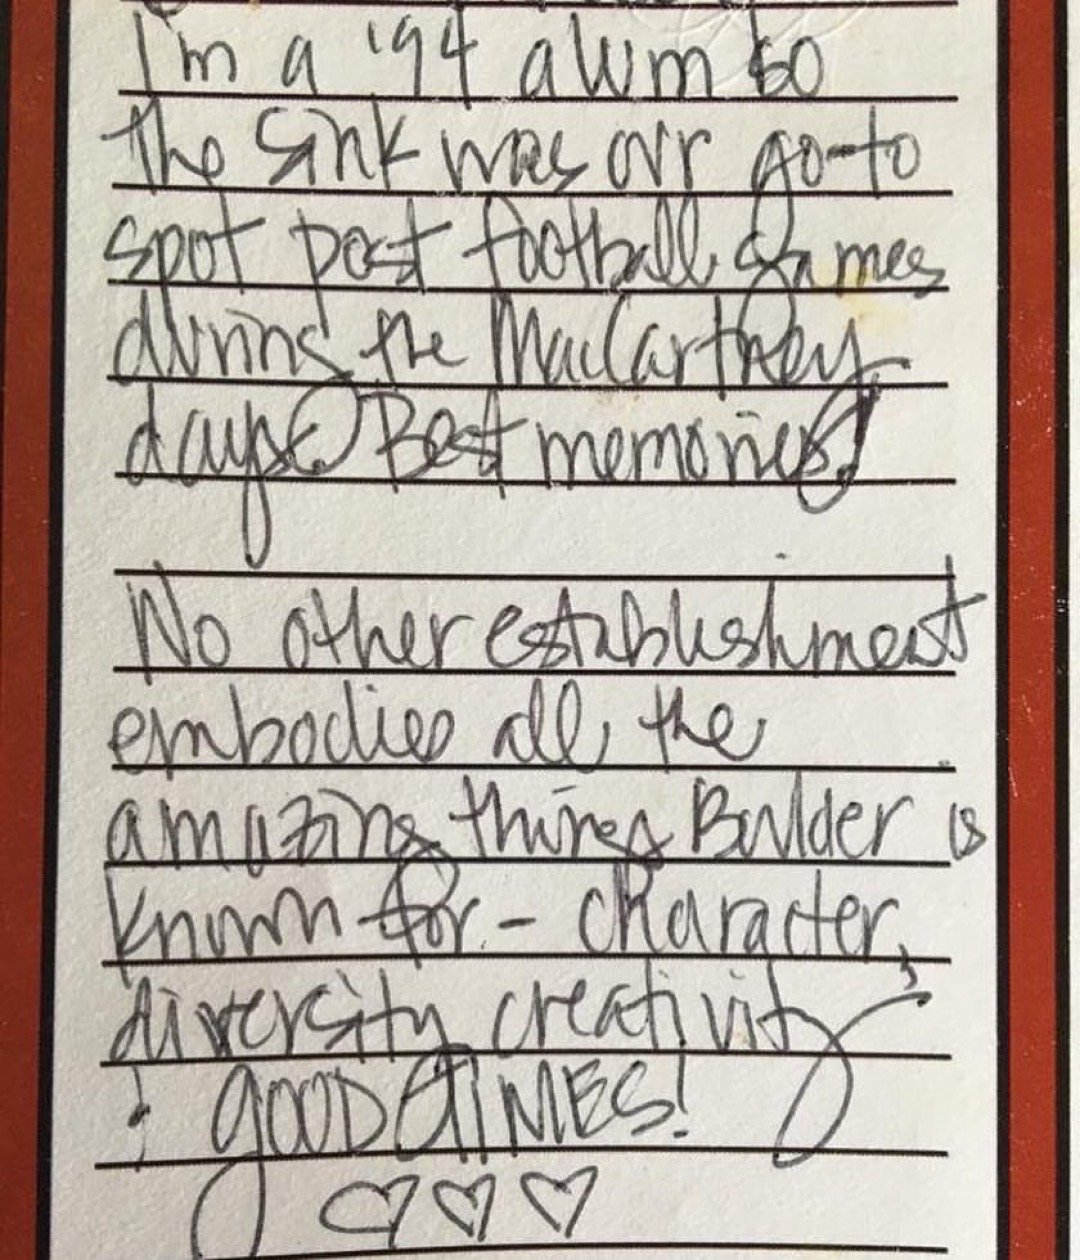 I'm a '94 alum so
the Sink was our go-to
spot post football games
during the MacCartney
days. Best memories!
No other establishment
embodies all the
amazing things Boulder is
known for - character,
diversity, creativity
& GOOD TIMES!
♡♡♡